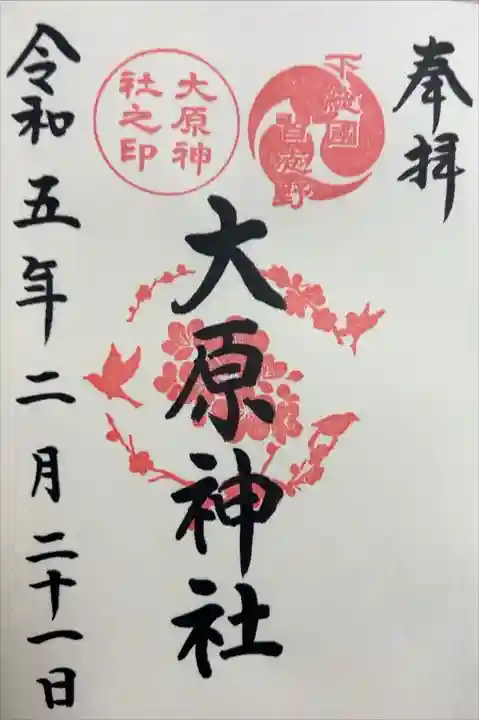 奉拝
下總國
習志野
大原神
社之印
大原神社
令和五年二月二十一日